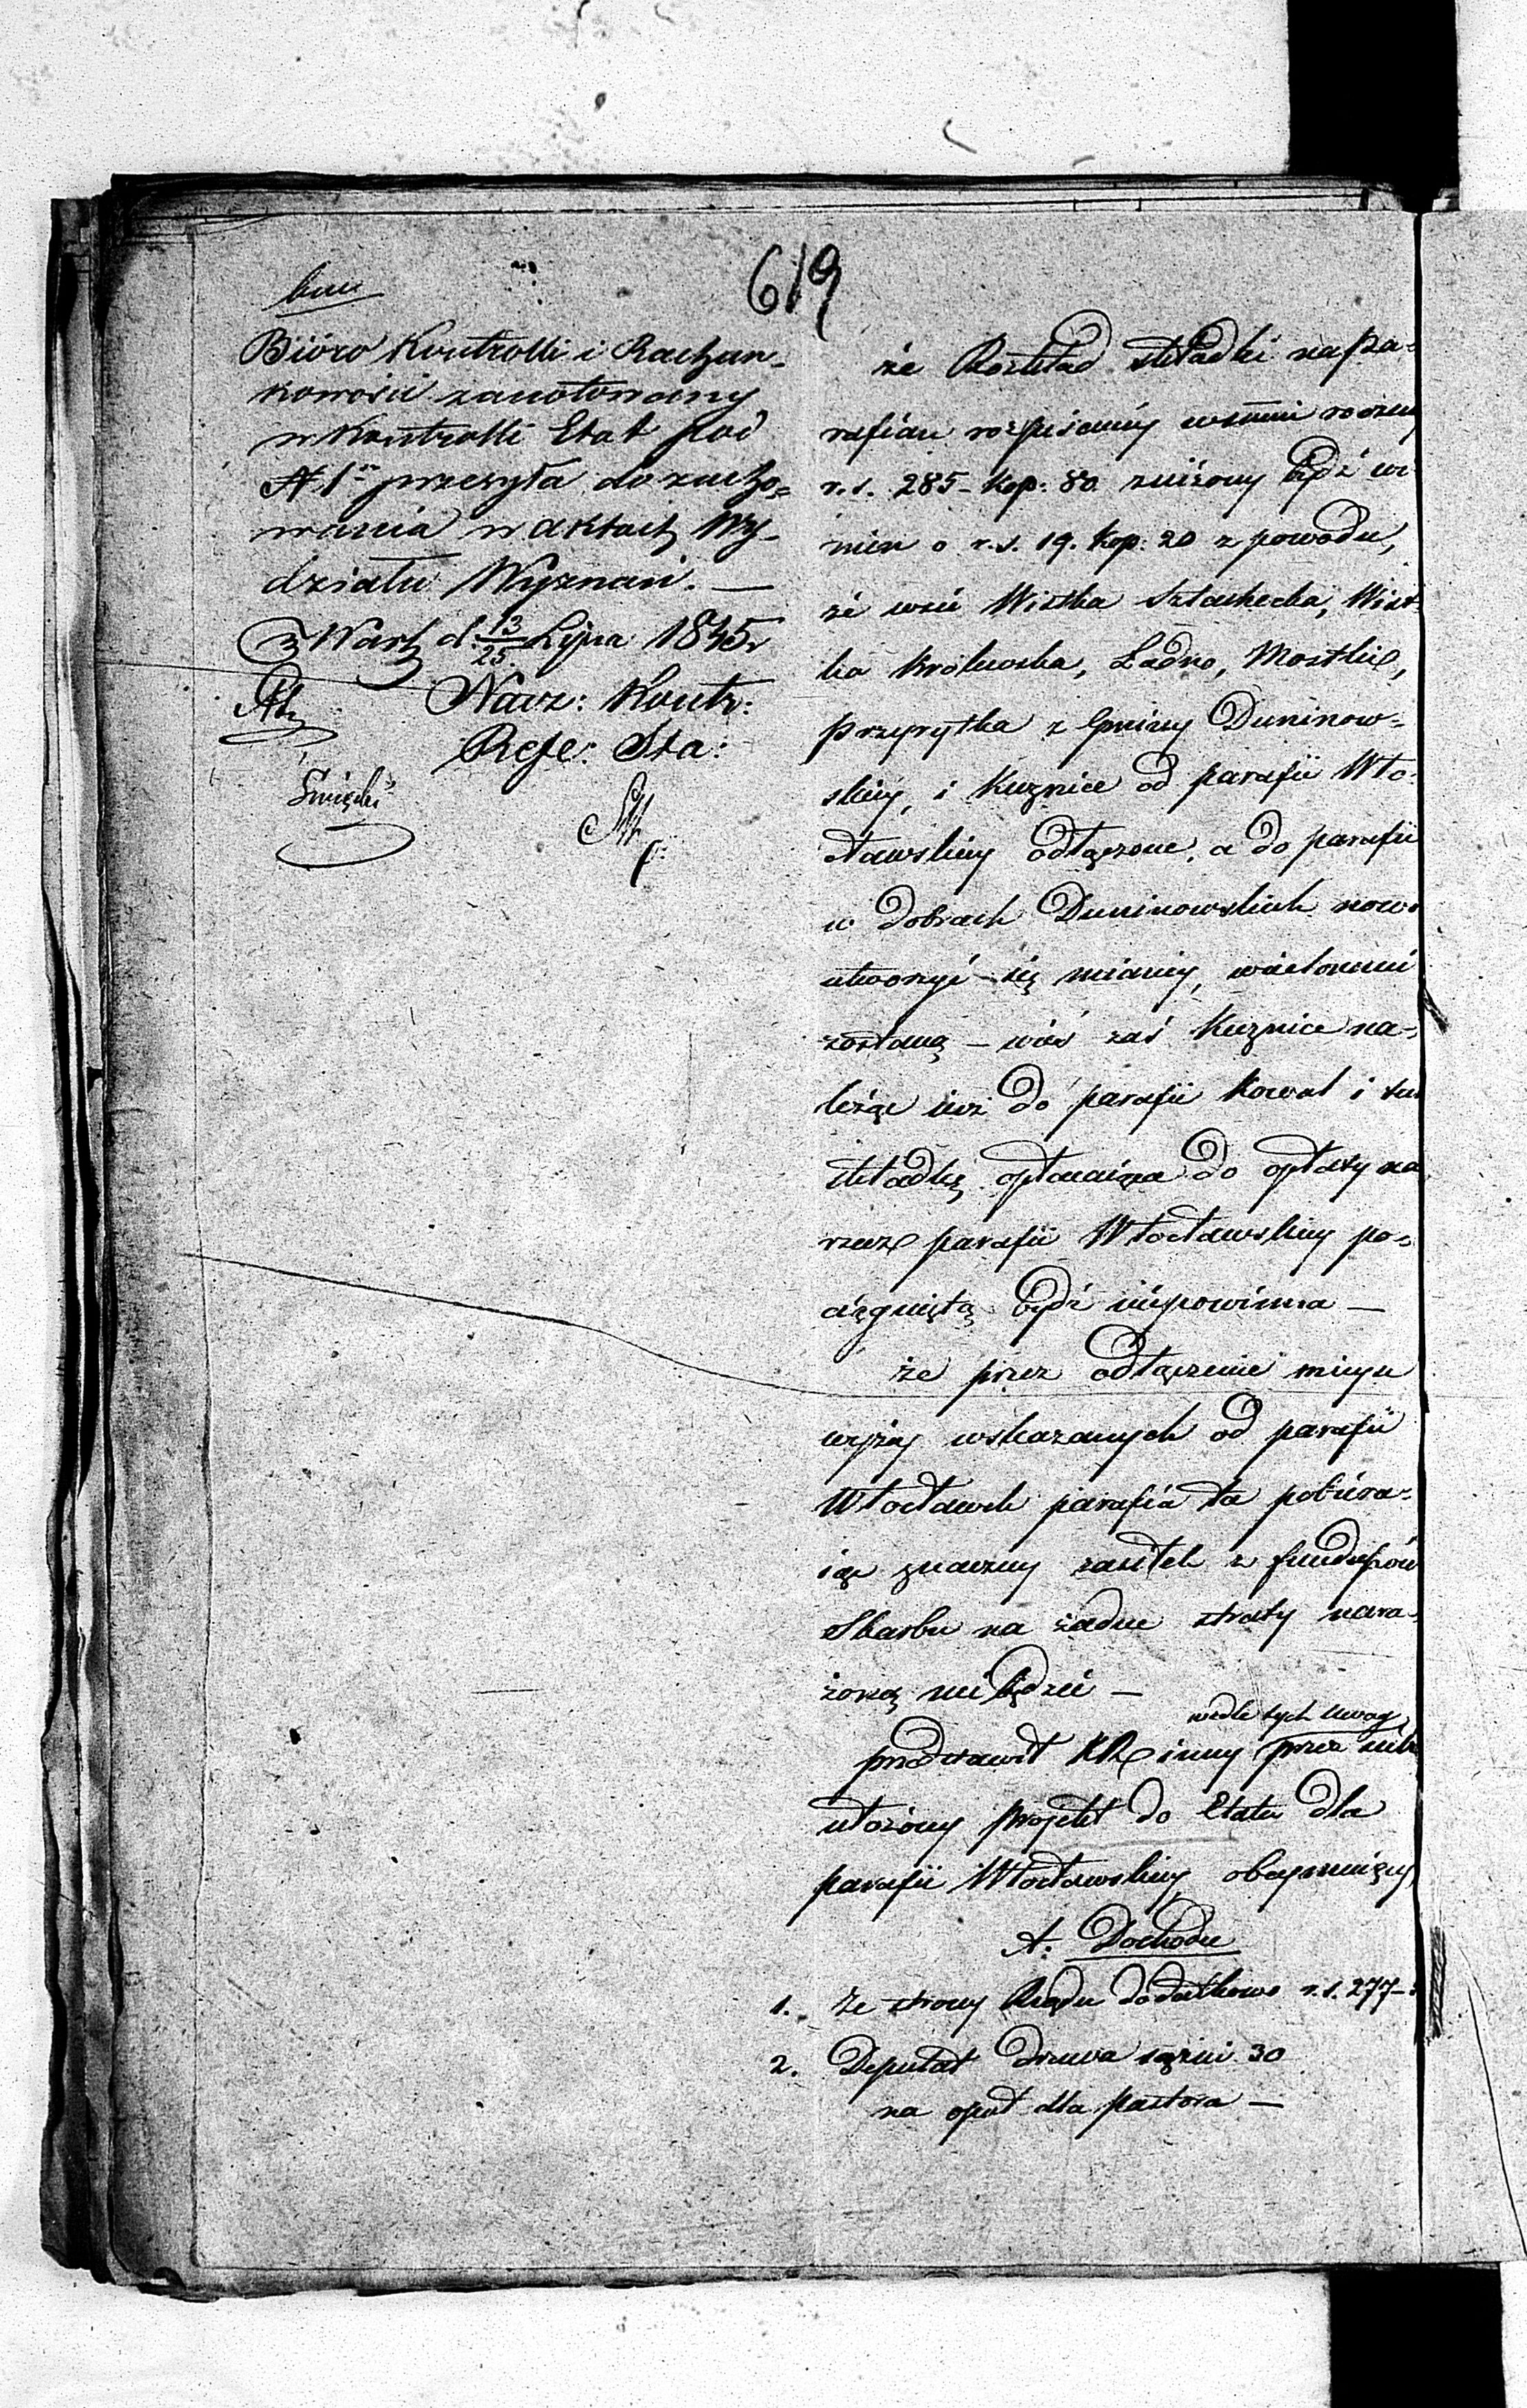 619
Bióro Kontrolli i Rachun-
kowości zanotowany
w Kontrolli Etat pod
N 1 przesyła do zacho=
wania w aktach Wy-
działu Wyznań. —
z Warsz d. 13/25 Lipca 1845 r
Nacz: Kontr:
Refe: Sta:
że Rozkład składki na pa-
rafian rozpisany w summie roczney
r.s. 285 - kop: 80. zniżony bydź wi-
nien o r.s. 19. kop: 20 z powodu,
że wsie Wistka Szlachecka, Wist-
ka Królewska, Ladno, Mostki,
przyrytka z Gminy Duninow-
skiey, i Kuznice od parafii Wło-
cławskiey odłączone, a do parafii
w dobrach Duninowskich nowo
utworzyć się mianey, wcielonemi
zostaną — wieś zaś Kuznice na-
leżąc już do parafii Kowal i tu
składkę opłacaiąca do opłaty na
rzecz parafii Włocławskiey po-
ciągniętą bydź niepowinna —
że przez odłączenie mieysc
wyżey wskazanych od parafii
Włocławek parafia ta pobiera-
iąc znaczny zasiłek z funduszów
Skarbu na żadne straty nara-
żoną nie będzie —
wedle tych uwag
przedstawił KR inny przez siebie
ułożony projekt do Etatu dla
parafii Włocławskiey obeymuiący
A. Dochodu
1. Ze strony Rządu dodatkowo r.s. 277 -
2. Deputat drzewa sążni 30
na opał dla pastora —